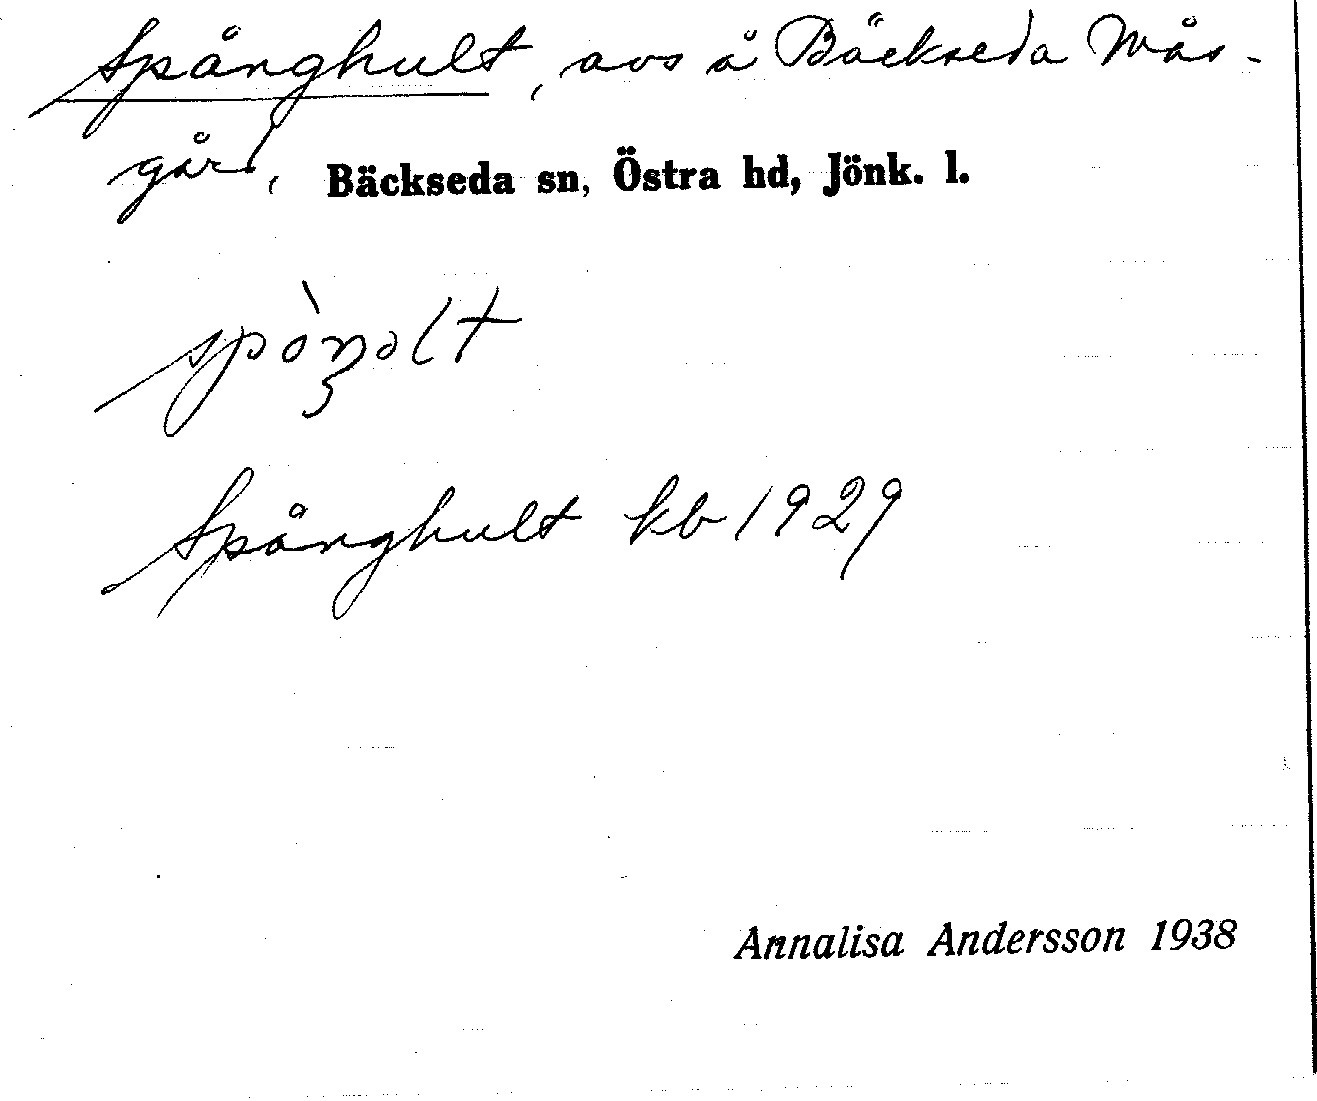 Spånghult, avs å Bäckseda Mås-
gård, Bäckseda sn, Östra hd, Jönk. l.
Spånghult kb 1929
Annalisa Andersson 1938